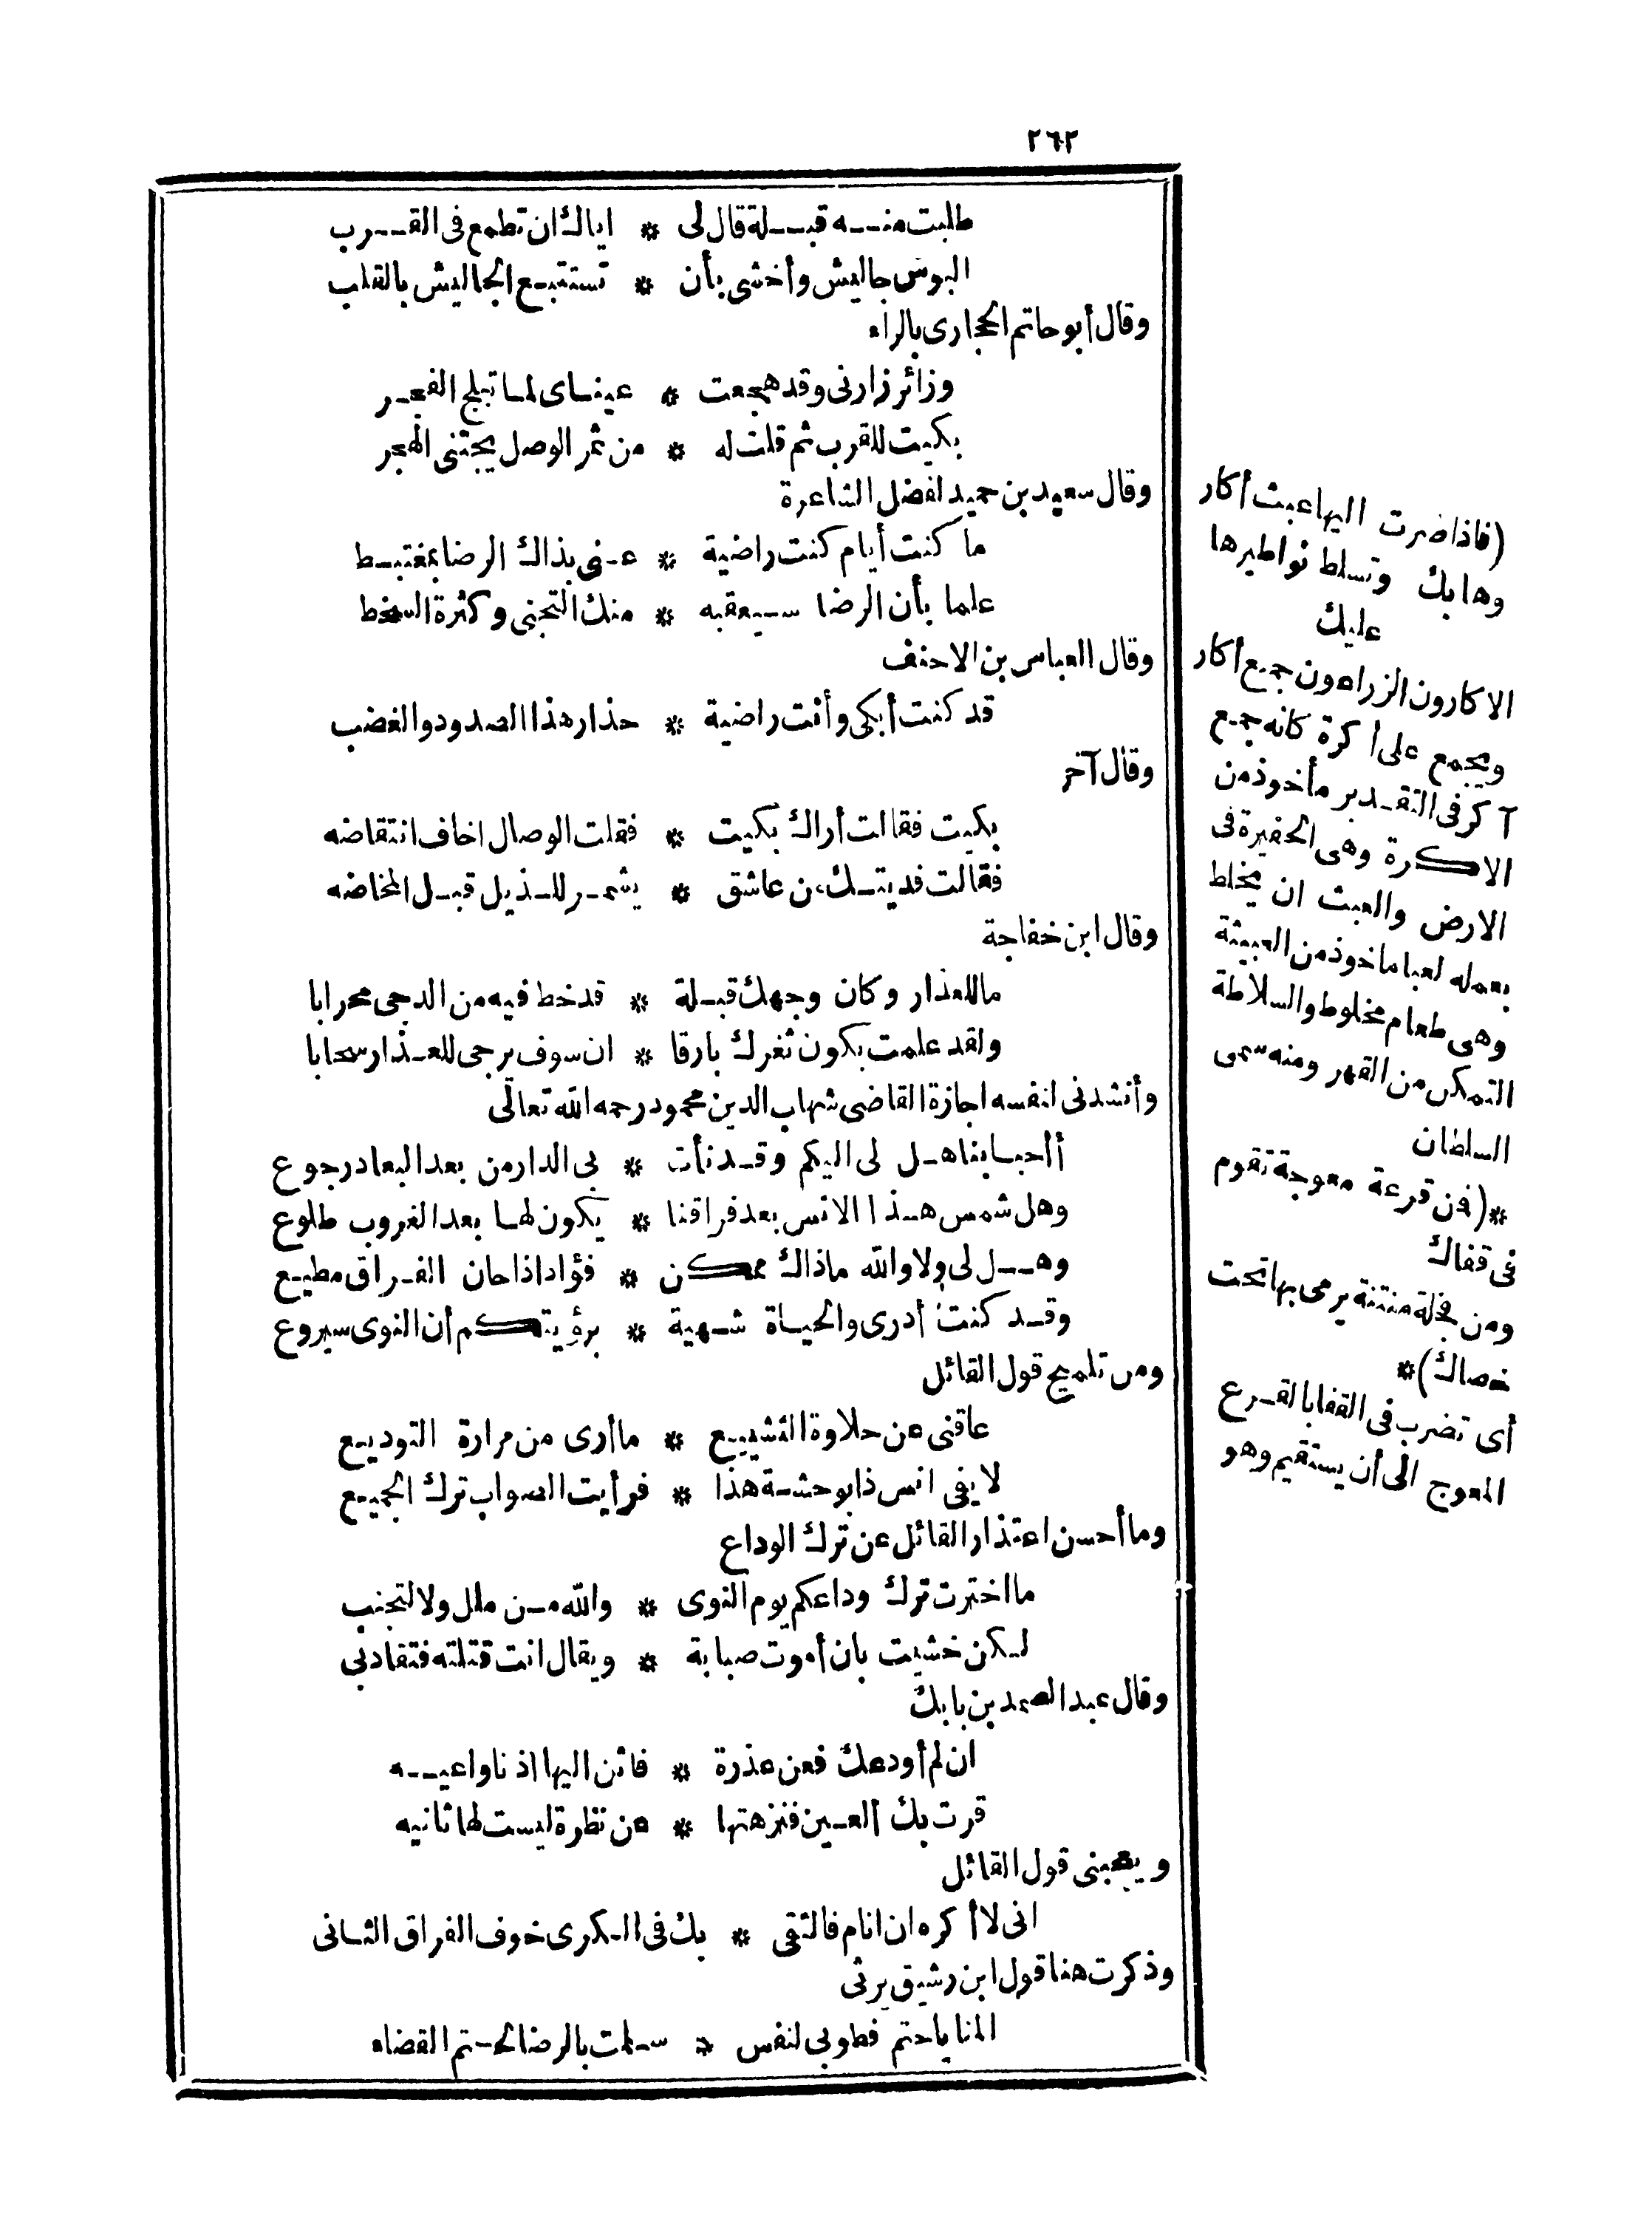 ٢٦٢
طلبت منه قبلة قال لى * اياك ان تطمع فى القرب
البوس جاليش وأخشى بأن * تستتبع الجاليش بالقلب
وقال أبو حاتم الحجارى بالراء
وزائر زارنى وقد هجعت * عيناى لما تبلج الفجر
بكيت للقرب ثم قلت له * من ثمر الوصل يجتنى الهجر
وقال سعيد بن حميد لفضل الشاعرة
ما كنت أيام كنت راضية * عنى بذاك الرضا بمغتبط
علما بأن الرضا سيعقبه * منك التجنى وكثرة السخط
وقال العباس بن الاحنف
قد كنت أبكى وأنت راضية * حذار هذا الصدود والغضب
وقال آخر
بكيت فقالت أراك بكيت * فقلت الوصال اخاف انتقاضه
فقالت فديتك من عاشق * يشمر للذيل قبل المخاضه
وقال ابن خفاجة
ما للعذار وكان وجهك قبلة * قد خط فيه من الدجى محرابا
ولقد علمت بكون ثغرك بارقا * ان سوف يرجى للعذار سحابا
وأنشدنى لنفسه اجازة القاضى شهاب الدين محمود رحمه الله تعالى
أأحبابنا هل لى اليكم وقد نأت * بى الدار من بعد البعاد رجوع
وهل شمس هذا الانس بعد فراقنا * يكون لها بعد الغروب طلوع
وهل لى ولا والله ما ذاك ممكن * فؤاد اذا حان الفراق مطيع
وقد كنت أدرى والحياة شهية * برؤيتكم أن النوى سيروع
ومن تلميح قول القائل
عاقنى عن حلاوة التشييع * ما أرى من مرارة التوديع
لا يفى انس ذا بوحشة هذا * فرأيت الصواب ترك الجميع
وما أحسن اعتذار القائل عن ترك الوداع
ما اخترت ترك وداعكم يوم النوى * والله من ملل ولا لتجنب
لكن خشيت بان أموت صبابة * ويقال انت قتلته فتقاد بى
وقال عبد الصمد بن بابك
ان لم أودعك فعن عذرة * فاثن اليها اذنا واعيه
قرت بك العين فنزهتها * عن نظرة ليست لها ثانيه
ويعجبنى قول القائل
انى لا أكره ان انام فالتقى * بك فى الكرى خوف الفراق الثانى
وذكرت هنا قول ابن رشيق يرثى
المنايا حتم فطوبى لنفس * سلمت بالرضا لحتم القضاء
(فاذا ضرت اليها عبث أكار
وها بك وتسلط نواطيرها
عليك
الاكارون الزراعون جمع أكار
ويجمع على أكرة كانه جمع
آكر فى التقدير مأخوذ من
الاكرة وهى الحفيرة فى
الارض والعبث ان يخلط
بعمله لعبا ماخوذ من العبيثة
وهى طعام مخلوط والسلاطة
التمكن من القهر ومنه سمى
السلطان
*(فمن قرعة معوجة تقوم
فى قفاك
ومن فجلة منتنة يرمى بها تحت
خصاك)*
أى تضرب فى القفا بالقرع
المعوج الى أن يستقيم وهو